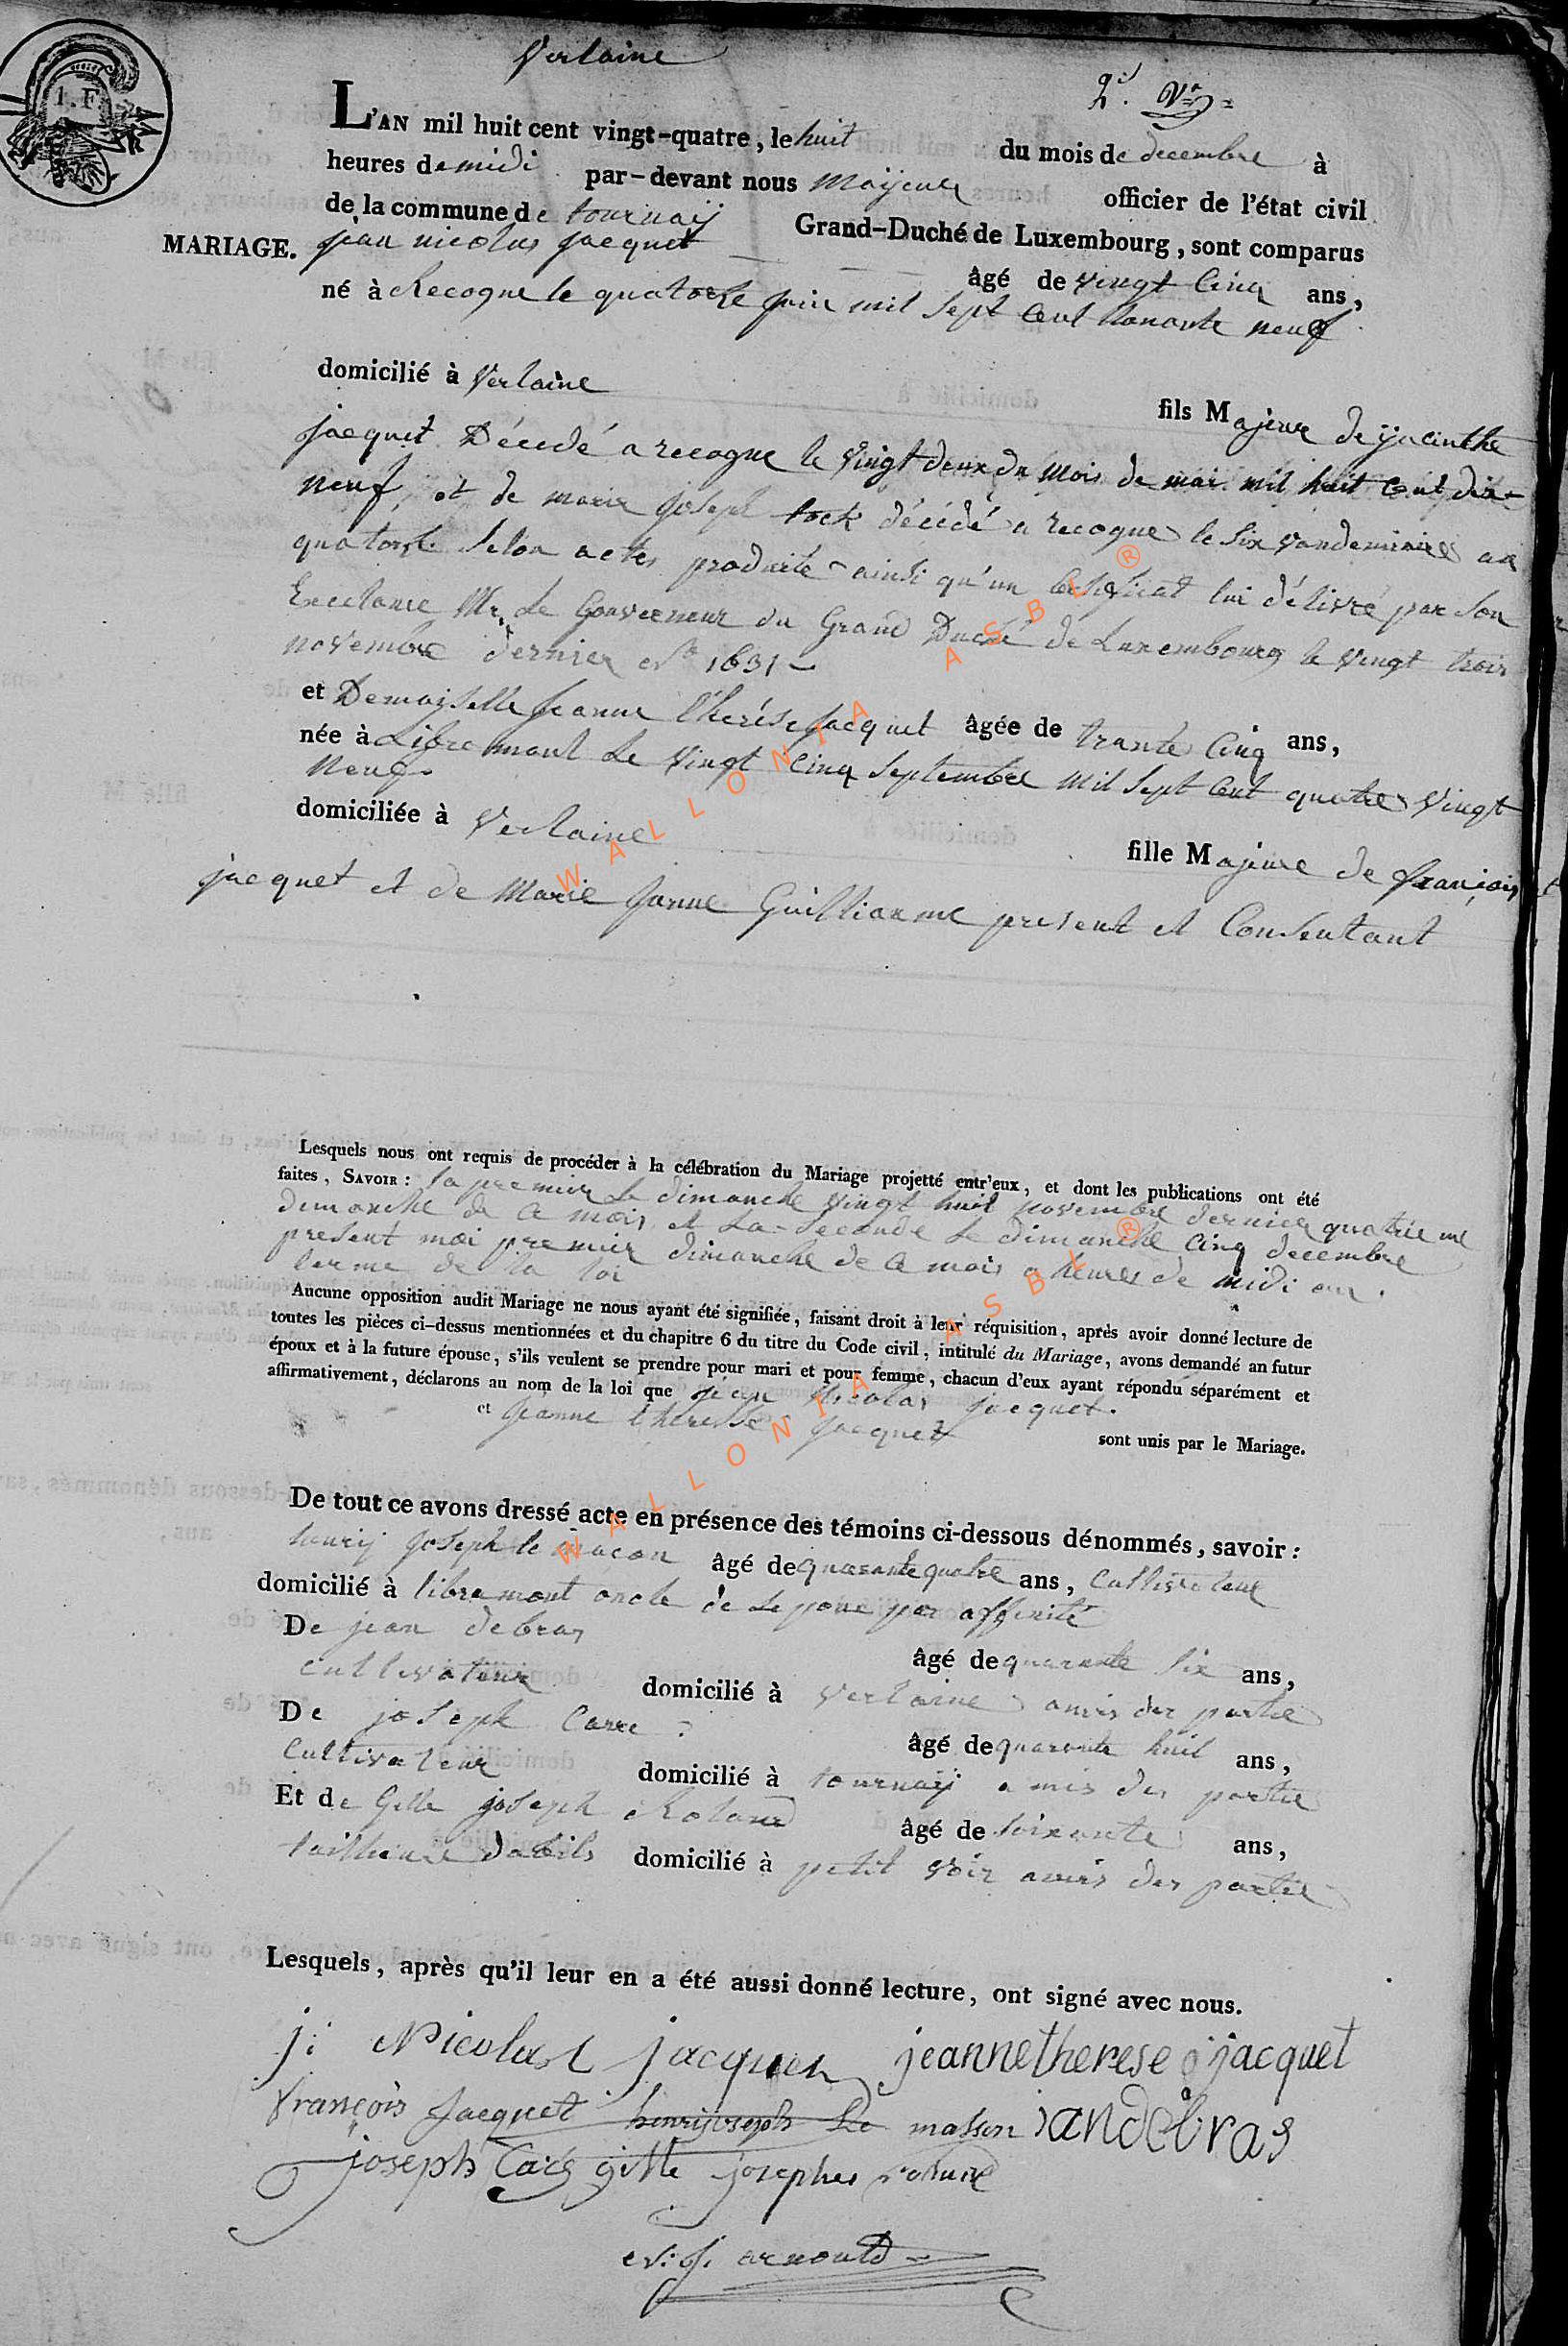 Verlaine
1. F.
L'AN mil huit cent vingt-quatre, le huit du mois de decembre à
heures de midi par-devant nous Maÿeur officier de l'état civil
de la commune de tournaÿ Grand-Duché de Luxembourg, sont comparus
MARIAGE. jean nicolas jacquet âgé de vingt Cinq ans,
né à Recogne le quatorze juin mil Sept Cent Nonante neuf
domicilié à Verlaine fils Majeur de ÿacinthe
jacquet Décédé a recogne le vingt deux du Mois de mai mil huit Cent dix-
neuf, et de marie joseph tock décédé a recogne le six vandemiaire an
quatorse Selon actes produite ainsi qu'un Certificat lui délivré par Son
Excelance Mr. Le Gouverneur du Grand Duché de Luxembourg le vingt trois
novembre dernier No 1631
et Demoÿselle Jeanne thérése Jacquet âgée de trante Cinq ans,
née à Libremont Le Vingt Cinq Septembre Mil Sept Cent quatre Vingt
Neuf
domiciliée à Verlaine fille Majeure de françois
jacquet et de Marie Janne Guillianme present et Consentant
Lesquels nous ont requis de procéder à la célébration du Mariage projetté entr'eux, et dont les publications ont été
faites, SAVOIR: la premier Le dimanche vingt huit novembre dernier quatrieme
dimanche de Ce mois et La Seconde Le dimanche Cinq decembre
present moi premier dimanche de Ce mois a heures de midi aux
terme de la loi
Aucune opposition audit Mariage ne nous ayant été signifiée, faisant droit à leur réquisition, après avoir donné lecture de
toutes les pièces ci-dessus mentionnées et du chapitre 6 du titre du Code civil, intitulé du Mariage, avons demandé au futur
époux et à la future épouse, s'ils veulent se prendre pour mari et pour femme, chacun d'eux ayant répondu séparément et
affirmativement, déclarons au nom de la loi que jean Nicolas jacquet.
et Jeanne therese Jacquet sont unis par le Mariage.
De tout ce avons dressé acte en présence des témoins ci-dessous dénommés, savoir:
henrÿ joseph le macon âgé de quarante quatre ans, Cultivateur
domicilié à libremont oncle de Lepoux par affinité
De jean debras âgé de quarante Six ans,
Cultivateur domicilié à Verlaine amis des partie
De joseph Carré âgé de quarante huit ans,
Cultivateur domicilié à tournaÿ amis des partie
Et de Gille joseph Roland âgé de soixante ans,
taillieure dabils domicilié à petit Voir amis des partie
Lesquels, après qu'il leur en a été aussi donné lecture, ont signé avec nous.
j: Nicolas jacquet jeannetherese jacquet
françois Jacquet henrijoseph Le masson jandebras
joseph Caré gille josephe roland
N: J. arnould
WALLONIA ASBL ®
WALLONIA ASBL ®